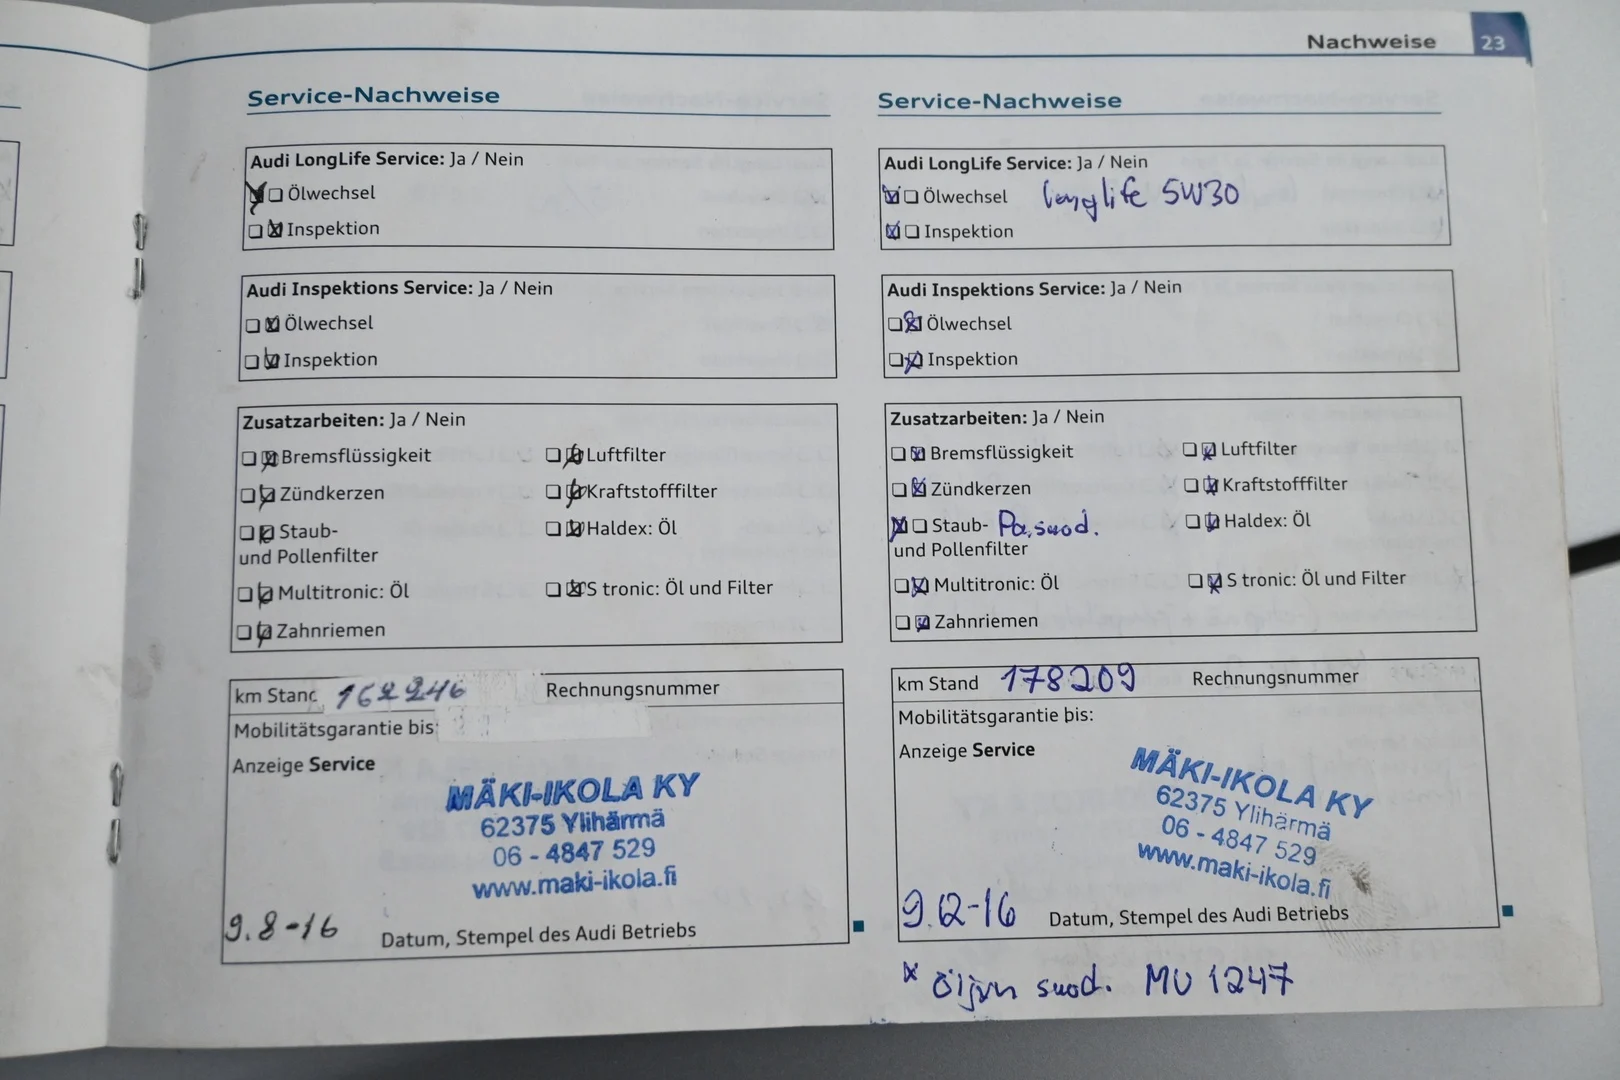 Nachweise 23
Service-Nachweise
Audi LongLife Service: Ja / Nein
Ölwechsel
Inspektion
Audi Inspektions Service: Ja / Nein
Ölwechsel
Inspektion
Zusatzarbeiten: Ja / Nein
Bremsflüssigkeit
Zündkerzen
Staub-
und Pollenfilter
Multitronic: Öl
Zahnriemen
Luftfilter
Kraftstofffilter
Haldex: Öl
S tronic: Öl und Filter
km Stand 162246
Rechnungsnummer
Mobilitätsgarantie bis:
Anzeige Service
MÄKI-IKOLA KY
62375 Ylihärmä
06 - 4847 529
www.maki-ikola.fi
9.8-16
Datum, Stempel des Audi Betriebs
Service-Nachweise
Audi LongLife Service: Ja / Nein
Ölwechsel longlife 5W30
Inspektion
Audi Inspektions Service: Ja / Nein
Ölwechsel
Inspektion
Zusatzarbeiten: Ja / Nein
Bremsflüssigkeit
Zündkerzen
Staub- Pa.suod.
und Pollenfilter
Multitronic: Öl
Zahnriemen
Luftfilter
Kraftstofffilter
Haldex: Öl
S tronic: Öl und Filter
km Stand 178209
Rechnungsnummer
Mobilitätsgarantie bis:
Anzeige Service
MÄKI-IKOLA KY
62375 Ylihärmä
06 - 4847 529
www.maki-ikola.fi
9.12-16
Datum, Stempel des Audi Betriebs
x Öljyn suod. MU 1247